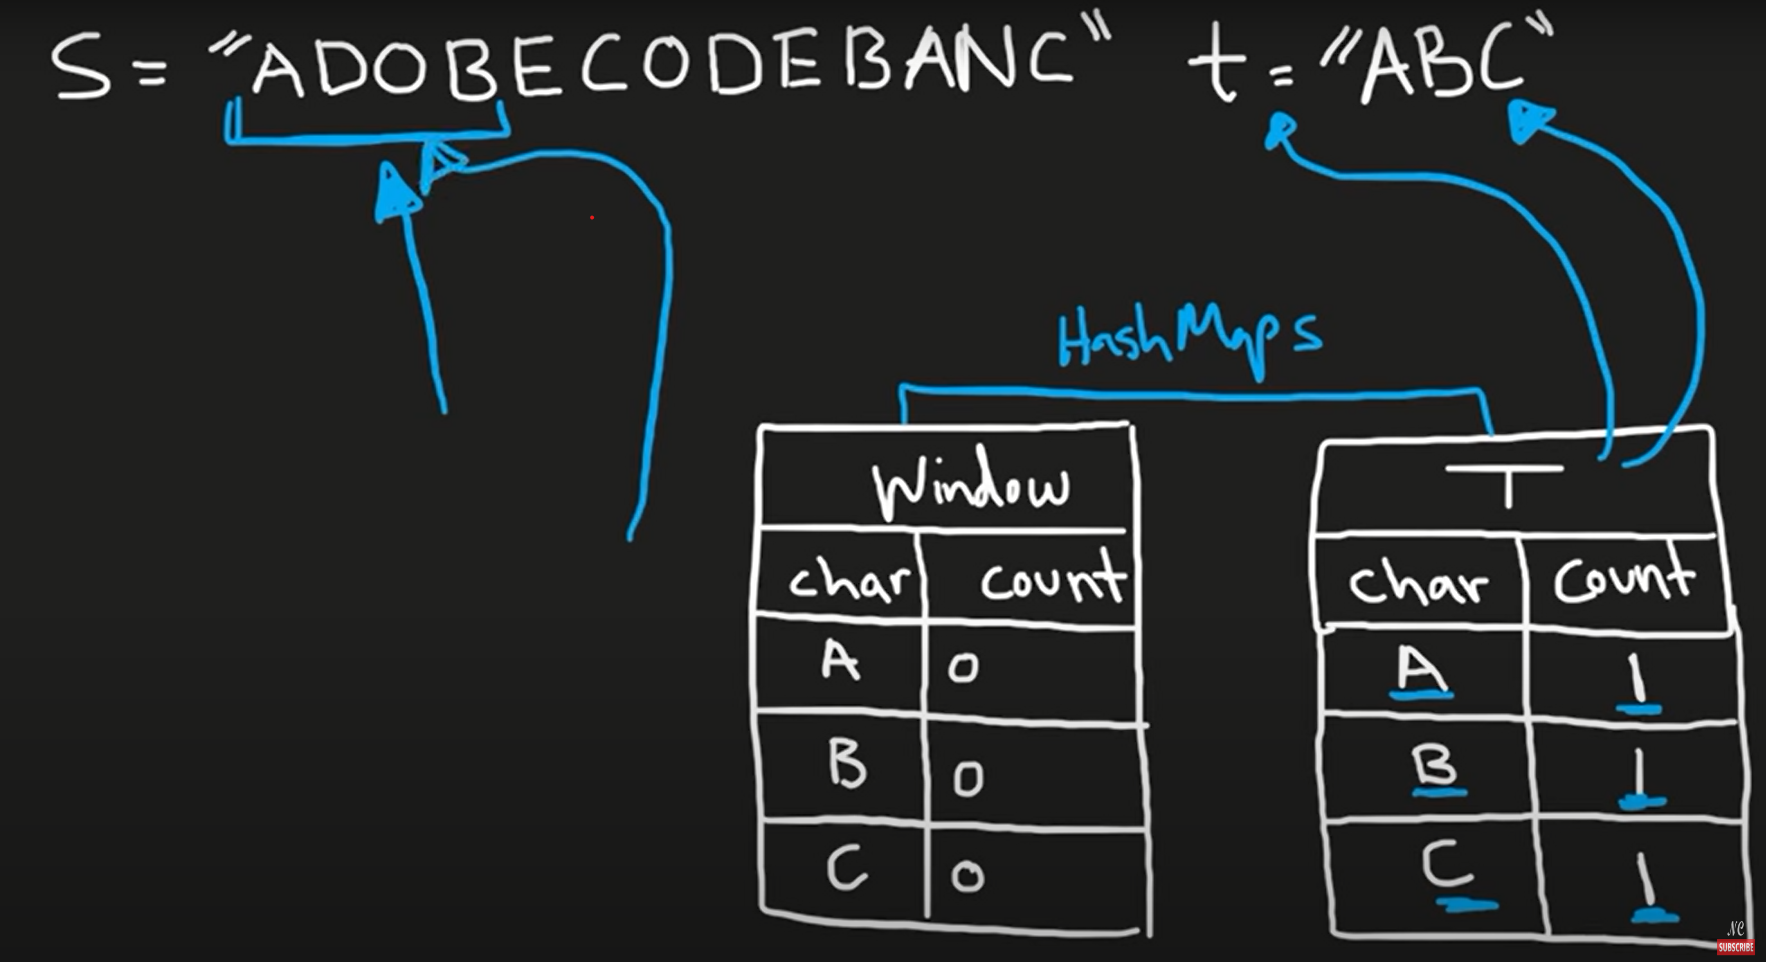 S = "ADOBECODEBANC" t = "ABC"
HashMaps
Window
char count
A 0
B 0
C 0
T
char count
A 1
B 1
C 1
NC
SUBSCRIBE